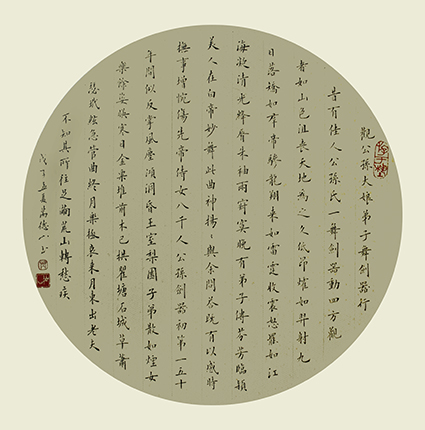 觀公孫大娘弟子舞劍器行
昔有佳人公孫氏一舞劍器動四方觀
者如山色沮喪天地為之久低昂㸌如羿射九
日落矯如群帝驂龍翔來如雷霆收震怒罷如江
海凝清光絳唇朱袖兩寂寞晚有弟子傳芬芳臨潁
美人在白帝妙舞此曲神揚〻與余問答既有以感時
撫事增惋傷先帝侍女八千人公孫劍器初第一五十
年間似反掌風塵澒洞昏王室梨園子弟散如煙女
樂餘姿映寒日金粟堆前木已拱瞿塘石城草蕭
瑟玳絃急管曲終月樂極哀來月東出老夫
不知其所往足繭荒山轉愁疾